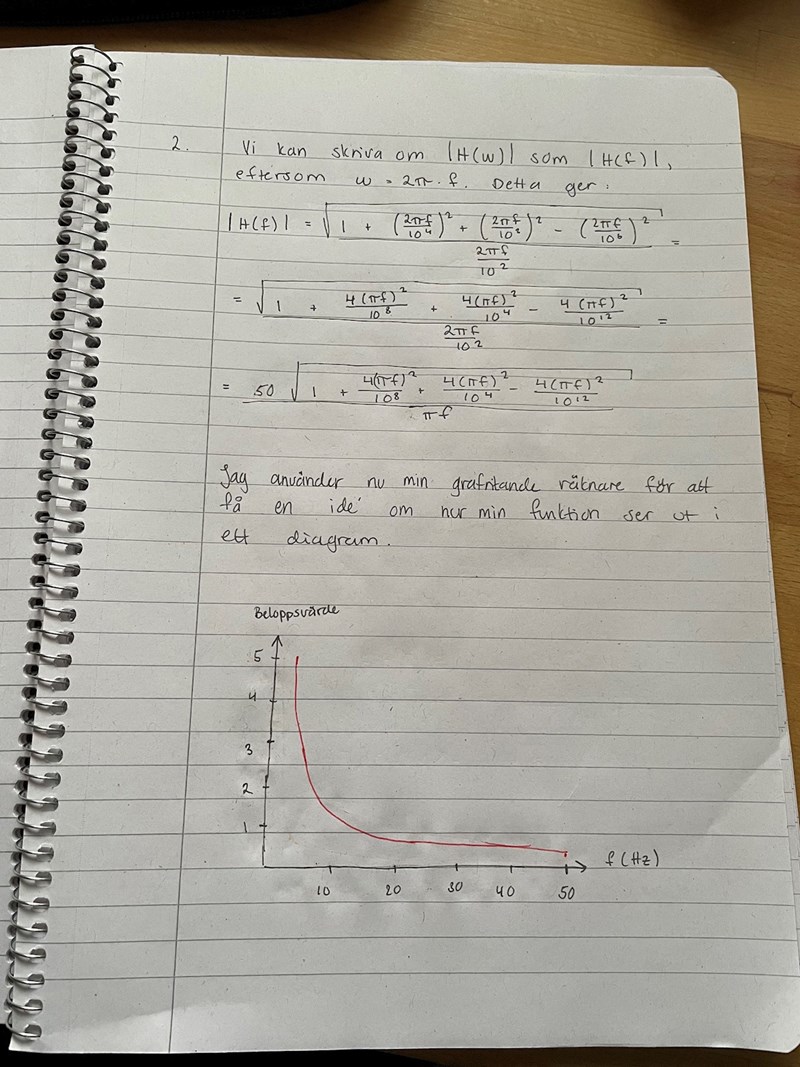 2. Vi kan skriva om |H(w)| som |H(f)|,
eftersom w = 2π · f. Detta ger:
|H(f)| = √(1 + (2πf/10⁴)² + (2πf/10²)² − (2πf/10⁶)²) / (2πf/10²) =
= √(1 + 4(πf)²/10⁸ + 4(πf)²/10⁴ − 4(πf)²/10¹²) / (2πf/10²) =
= 50 √(1 + 4(πf)²/10⁸ + 4(πf)²/10⁴ − 4(πf)²/10¹²) / πf
Jag använder nu min grafritande räknare för att
få en idé om hur min funktion ser ut i
ett diagram.
Beloppsvärde
5
4
3
2
1
f (Hz)
10 20 30 40 50